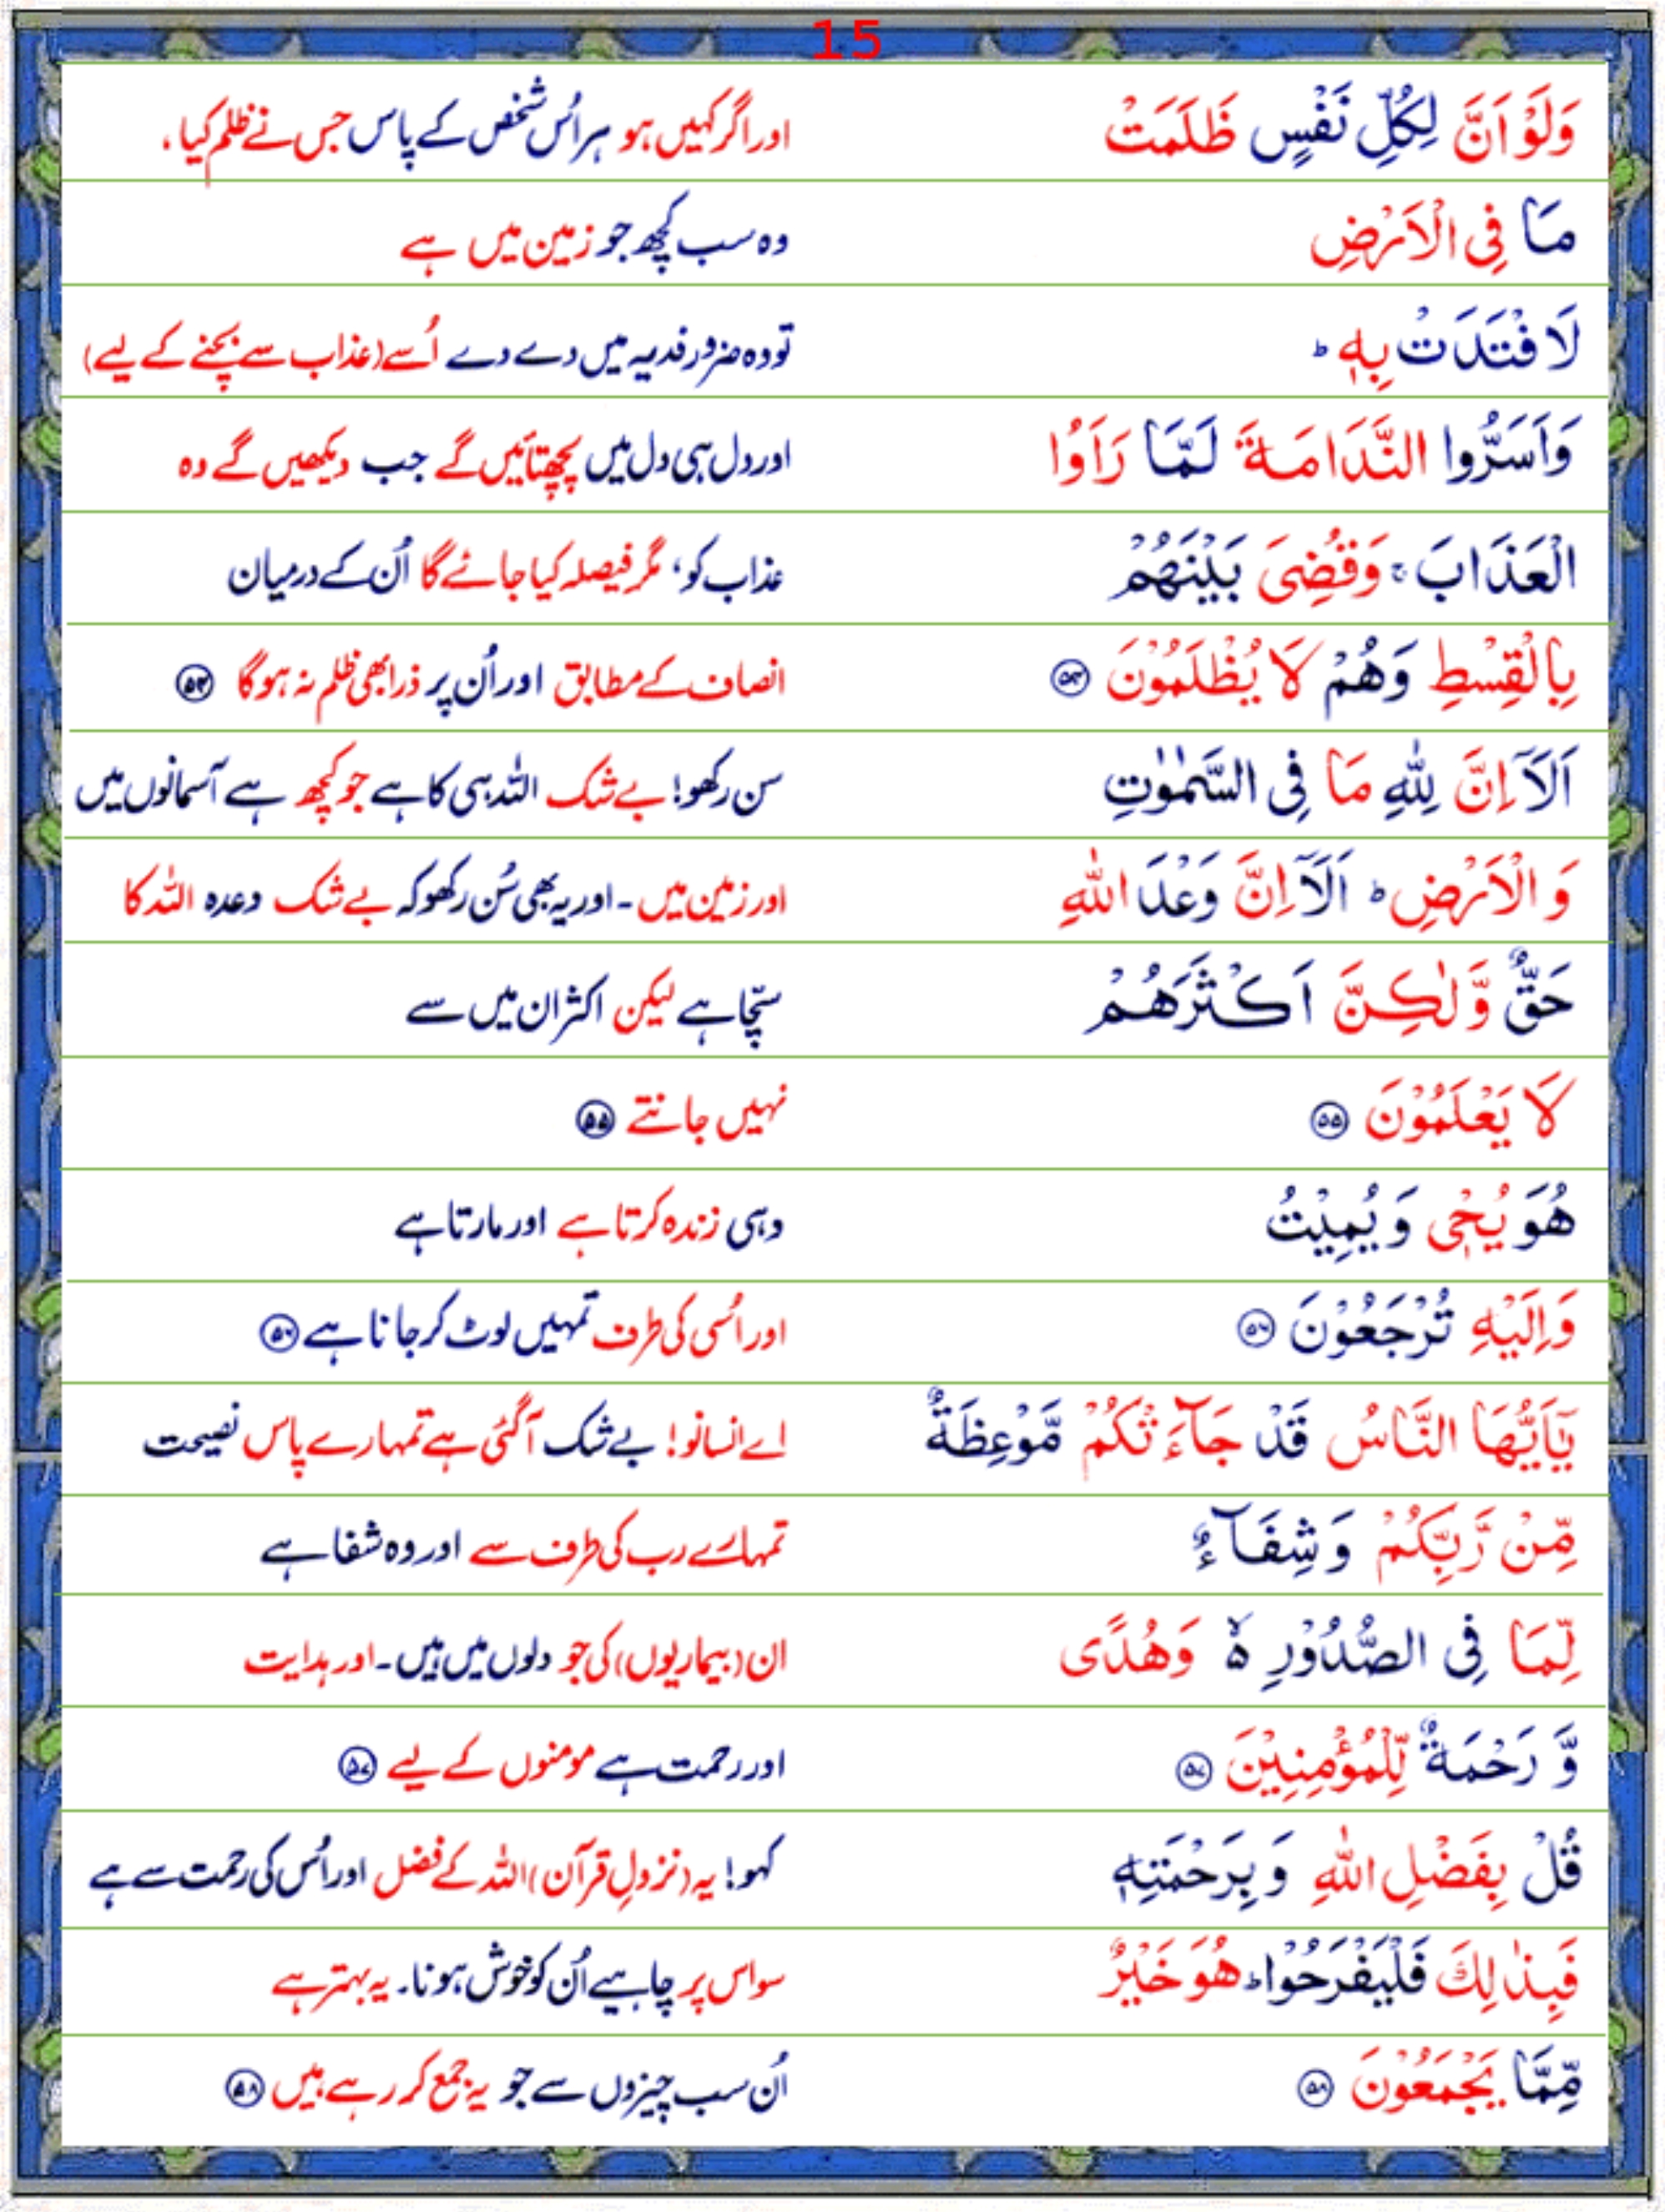 15
وَلَوْ اَنَّ لِكُلِّ نَفْسٍ ظَلَمَتْ اور اگر کہیں ہو ہر اُس شخص کے پاس جس نے ظلم کیا،
مَا فِى الْاَرْضِ وہ سب کچھ جو زمین میں ہے
لَا فْتَدَتْ بِهٖ ؕ تو وہ ضرور فدیہ میں دے دے اُسے (عذاب سے بچنے کے لیے)
وَاَسَرُّوا النَّدَامَةَ لَمَّا رَاَوُا اور دل ہی دل میں پچھتائیں گے جب دیکھیں گے وہ
الْعَذَابَ ۚ وَقُضِىَ بَيْنَهُمْ عذاب کو، مگر فیصلہ کیا جائے گا اُن کے درمیان
بِالْقِسْطِ وَهُمْ لَا يُظْلَمُوْنَ ﴿۵۴﴾ انصاف کے مطابق اور اُن پر ذرا بھی ظلم نہ ہوگا ﴿۵۴﴾
اَلَاۤ اِنَّ لِلّٰهِ مَا فِى السَّمٰوٰتِ سن رکھو! بے شک اللہ ہی کا ہے جو کچھ ہے آسمانوں میں
وَ الْاَرْضِ ؕ اَلَاۤ اِنَّ وَعْدَ اللّٰهِ اور زمین میں۔ اور یہ بھی سُن رکھو کہ بے شک وعدہ اللہ کا
حَقٌّ وَّلٰكِنَّ اَكْثَرَهُمْ سچّا ہے لیکن اکثر ان میں سے
لَا يَعْلَمُوْنَ ﴿۵۵﴾ نہیں جانتے ﴿۵۵﴾
هُوَ يُحْىٖ وَيُمِيْتُ وہی زندہ کرتا ہے اور مارتا ہے
وَاِلَيْهِ تُرْجَعُوْنَ ﴿۵۶﴾ اور اُسی کی طرف تمہیں لوٹ کر جانا ہے ﴿۵۶﴾
يٰۤاَيُّهَا النَّاسُ قَدْ جَآءَتْكُمْ مَّوْعِظَةٌ اے انسانو! بے شک آگئی ہے تمہارے پاس نصیحت
مِّنْ رَّبِّكُمْ وَشِفَآءٌ تمہارے رب کی طرف سے اور وہ شفا ہے
لِّمَا فِى الصُّدُوْرِ ۙ۬ وَهُدًى ان (بیماریوں) کی جو دلوں میں ہیں۔ اور ہدایت
وَّ رَحْمَةٌ لِّلْمُؤْمِنِيْنَ ﴿۵۷﴾ اور رحمت ہے مومنوں کے لیے ﴿۵۷﴾
قُلْ بِفَضْلِ اللّٰهِ وَ بِرَحْمَتِهٖ کہو! یہ (نزولِ قرآن) اللہ کے فضل اور اُس کی رحمت سے ہے
فَبِذٰلِكَ فَلْيَفْرَحُوْا ؕ هُوَ خَيْرٌ سو اس پر چاہیے اُن کو خوش ہونا۔ یہ بہتر ہے
مِّمَّا يَجْمَعُوْنَ ﴿۵۸﴾ اُن سب چیزوں سے جو یہ جمع کر رہے ہیں ﴿۵۸﴾